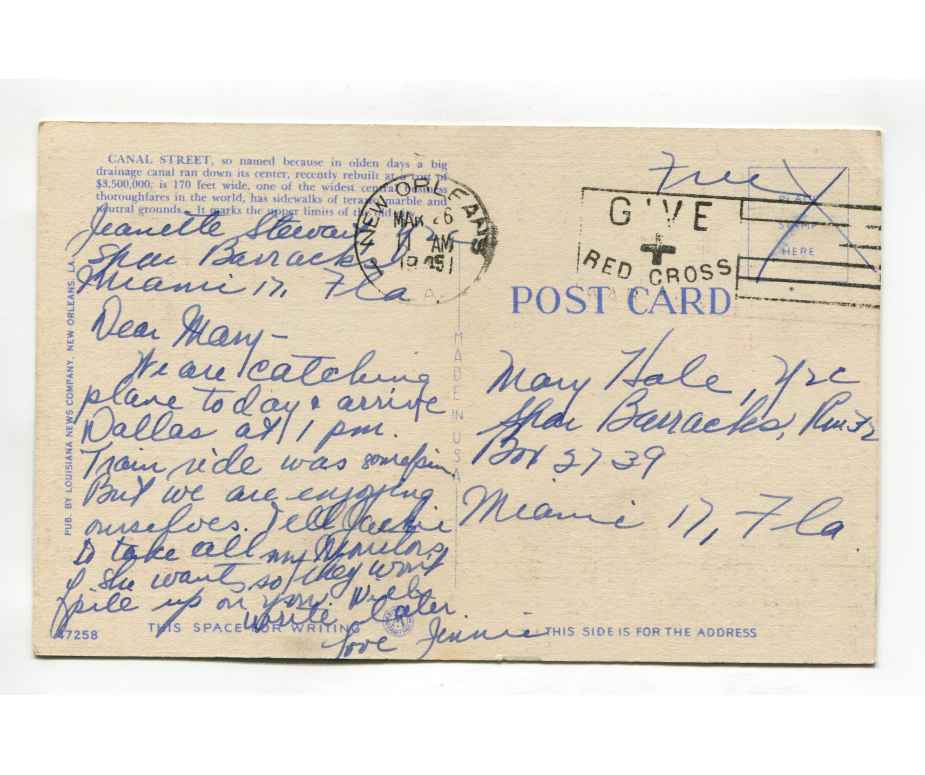 CANAL STREET, so named because in olden days a big
drainage canal ran down its center, recently rebuilt at a cost of
$3,500,000; is 170 feet wide, one of the widest central business
thoroughfares in the world, has sidewalks of terazzo marble and
neutral grounds. It marks the upper limits of the old
Jeanette Stewart
Spar Barracks
Miami 17, Fla
Dear Mary-
We are catching
plane today & arrive
Dallas at 1 pm.
Train ride was
But we are enjoying
ourselves. Tell Jackie
to take all my
if she wants so they won't
pile up on you. Will
write later
Love Jennie
PUB. BY LOUISIANA NEWS COMPANY, NEW ORLEANS, LA.
47258
THIS SPACE FOR WRITING
MADE IN U.S.A.
NEW ORLEANS
MAR 26
1 AM
1945
LA.
Free
GIVE
RED CROSS
PLACE
STAMP
HERE
POST CARD
Mary Hale, Y2c
Spar Barracks, Rm 32
Box 2739
Miami 17, Fla
THIS SIDE IS FOR THE ADDRESS